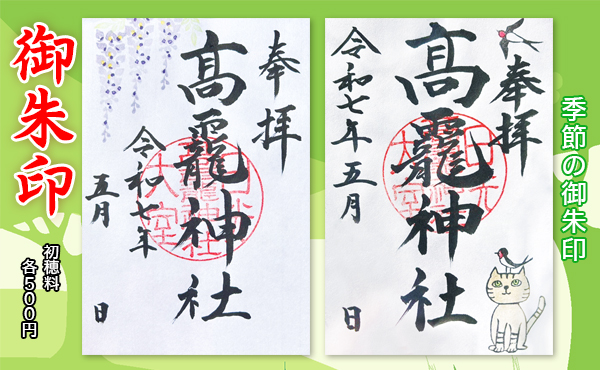 御朱印
初穂料
各500円
奉拝
髙龗神社
令和七年
五月
日
奉拝
髙龗神社
令和七年五月
日
季節の御朱印